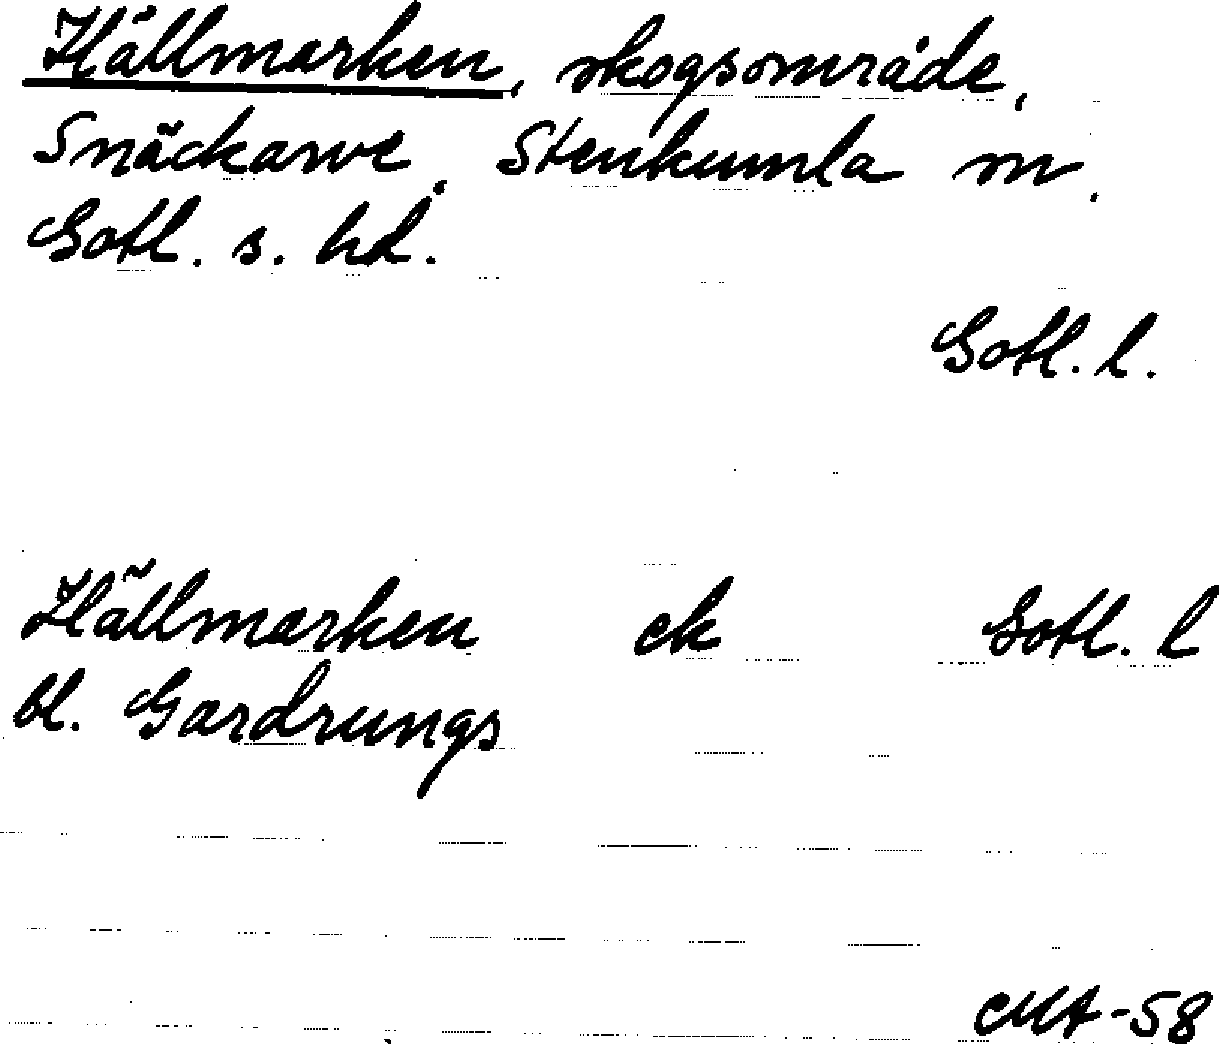 Hällmarken, skogsområde,
Snäckarve, Stenkumla sn.
Gotl. s. hd.
Gotl. l.
Hällmarken ek Gotl. l
bl. Gardrungs
CMA-58